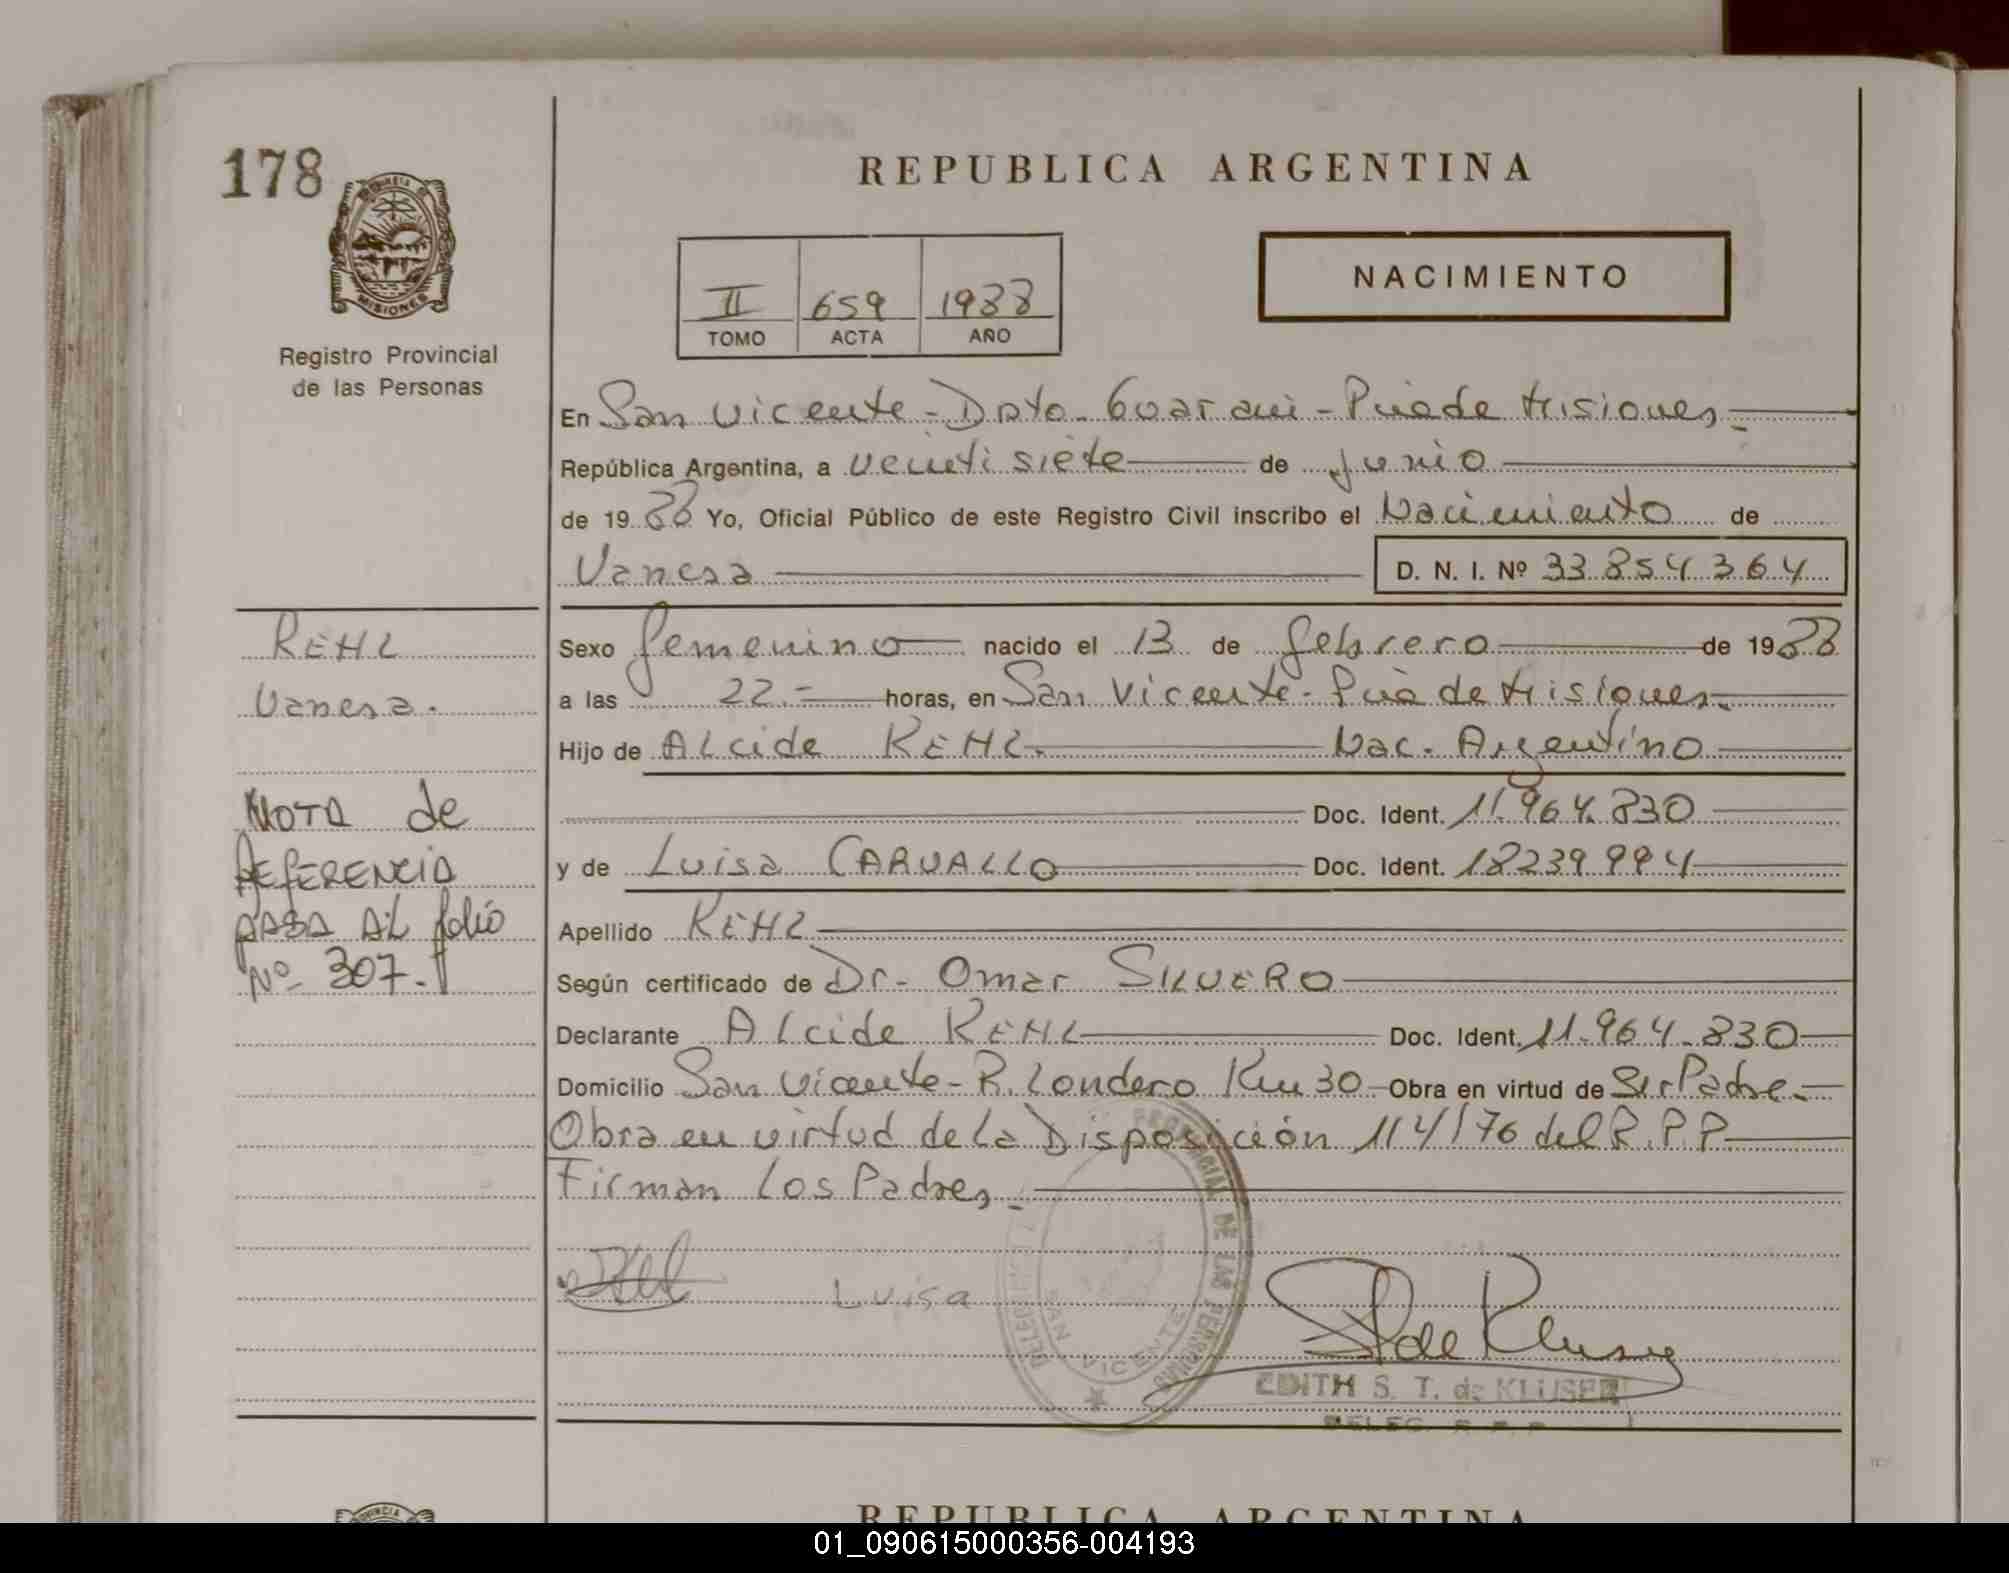 178
PROVINCIA
MISIONES
Registro Provincial
de las Personas
REPUBLICA ARGENTINA
II 659 1988
TOMO ACTA AÑO
NACIMIENTO
En San Vicente - Dpto. Guaraní - Pcia de Misiones.-
República Argentina, a veintisiete de junio
de 1988 Yo, Oficial Público de este Registro Civil inscribo el Nacimiento de
Vanesa D. N. I. Nº 33.854.364
KEHL
Vanesa.
Sexo femenino nacido el 13 de febrero de 1988
a las 22.- horas, en San Vicente - Pcia de Misiones.-
Hijo de Alcide KEHL. Nac. Argentino
Doc. Ident. 11.964.830
y de Luisa CARVALLO Doc. Ident. 18239994
Apellido KEHL
Según certificado de Dr. Omar SILVERO
Declarante Alcide KEHL Doc. Ident. 11.964.830
Domicilio San Vicente - R. Londero Km 30 Obra en virtud de Ser Padre.-
Obra en virtud de la Disposición 114/76 del R.P.P
Firman Los Padres.-
NOTA de
REFERENCIA
PASA AL folio
Nº 307.-
Luisa
DELEGACION PROVINCIAL DE LAS PERSONAS
SAN VICENTE
S T de Kluser
EDITH S. T. de KLUSER
DELEG. R. P. P.
PROVINCIA
REPUBLICA ARGENTINA
01_090615000356-004193